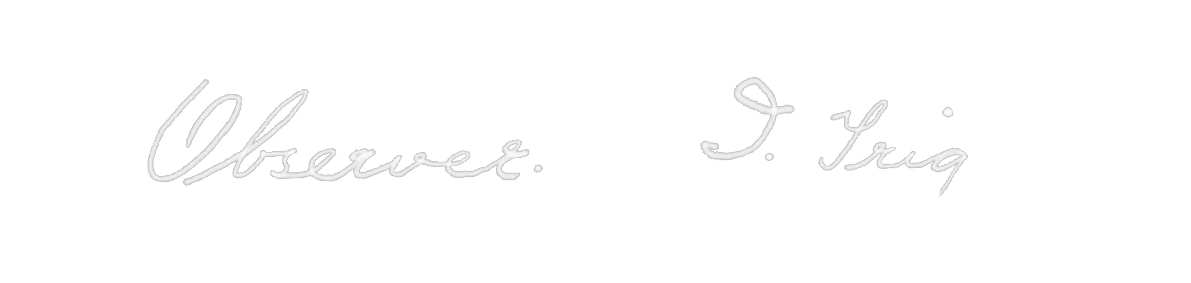 Observer. I. Triq